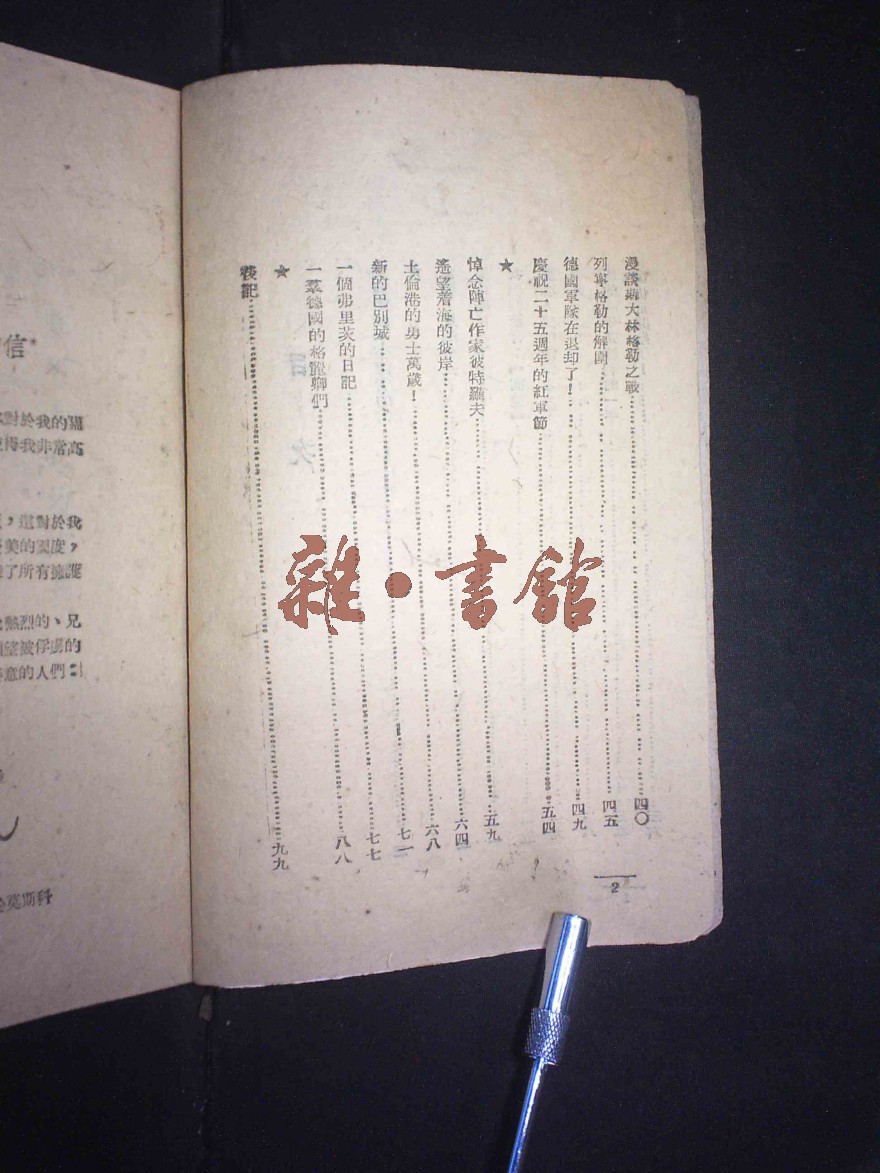 漫談斯大林格勒之戰……四〇
列寧格勒的解圍……四五
德國軍隊在退却了！……四九
慶祝二十五週年的紅軍節……五四
★
悼念陣亡作家彼特羅夫……五九
遙望着海的彼岸……六四
土倫港的勇士萬歲！……六八
新的巴別城……七一
一個弗里茨的日記……七七
一羣德國的格麗卿們……八八
★
後記……九九
2
雜·書館
信*
對於我的關
得我非常高
，這對於我
美的
了所有擁護
熱烈的、兄
被俘虜的
意的人們：
莫斯科